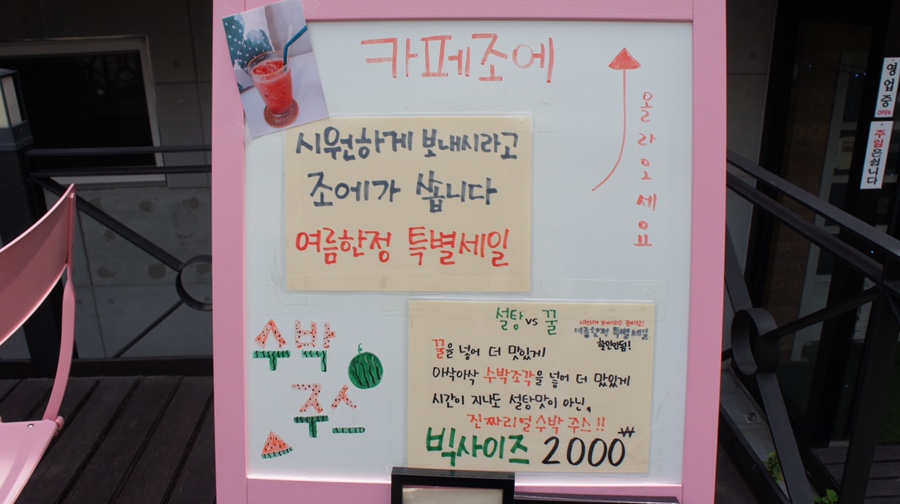 카페조에
올라오세요
시원하게 보내시라고
조에가 쏩니다
여름한정 특별세일
수박
주스
설탕 vs 꿀
여름한정 특별세일
할인한됨!
꿀을 넣어 더 맛있게
아삭아삭 수박조각을 넣어 더 맛있게
시간이 지나도 설탕맛이 아닌,
진짜리얼수박 주스!!
빅사이즈 2000₩
영업중
OPEN
주일은쉽니다